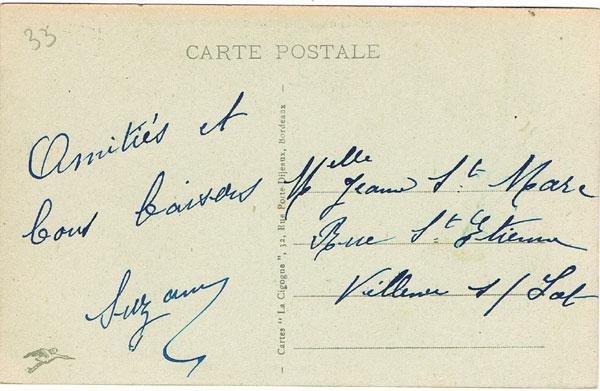 33
CARTE POSTALE
Amitiés et
bons baisers
Suzanne
Cartes "La Cigogne", 32, Rue Porte-Dijeaux, Bordeaux
Melle Jeanne St. Marc
Rue St Etienne
Villeneuve s/ Lot